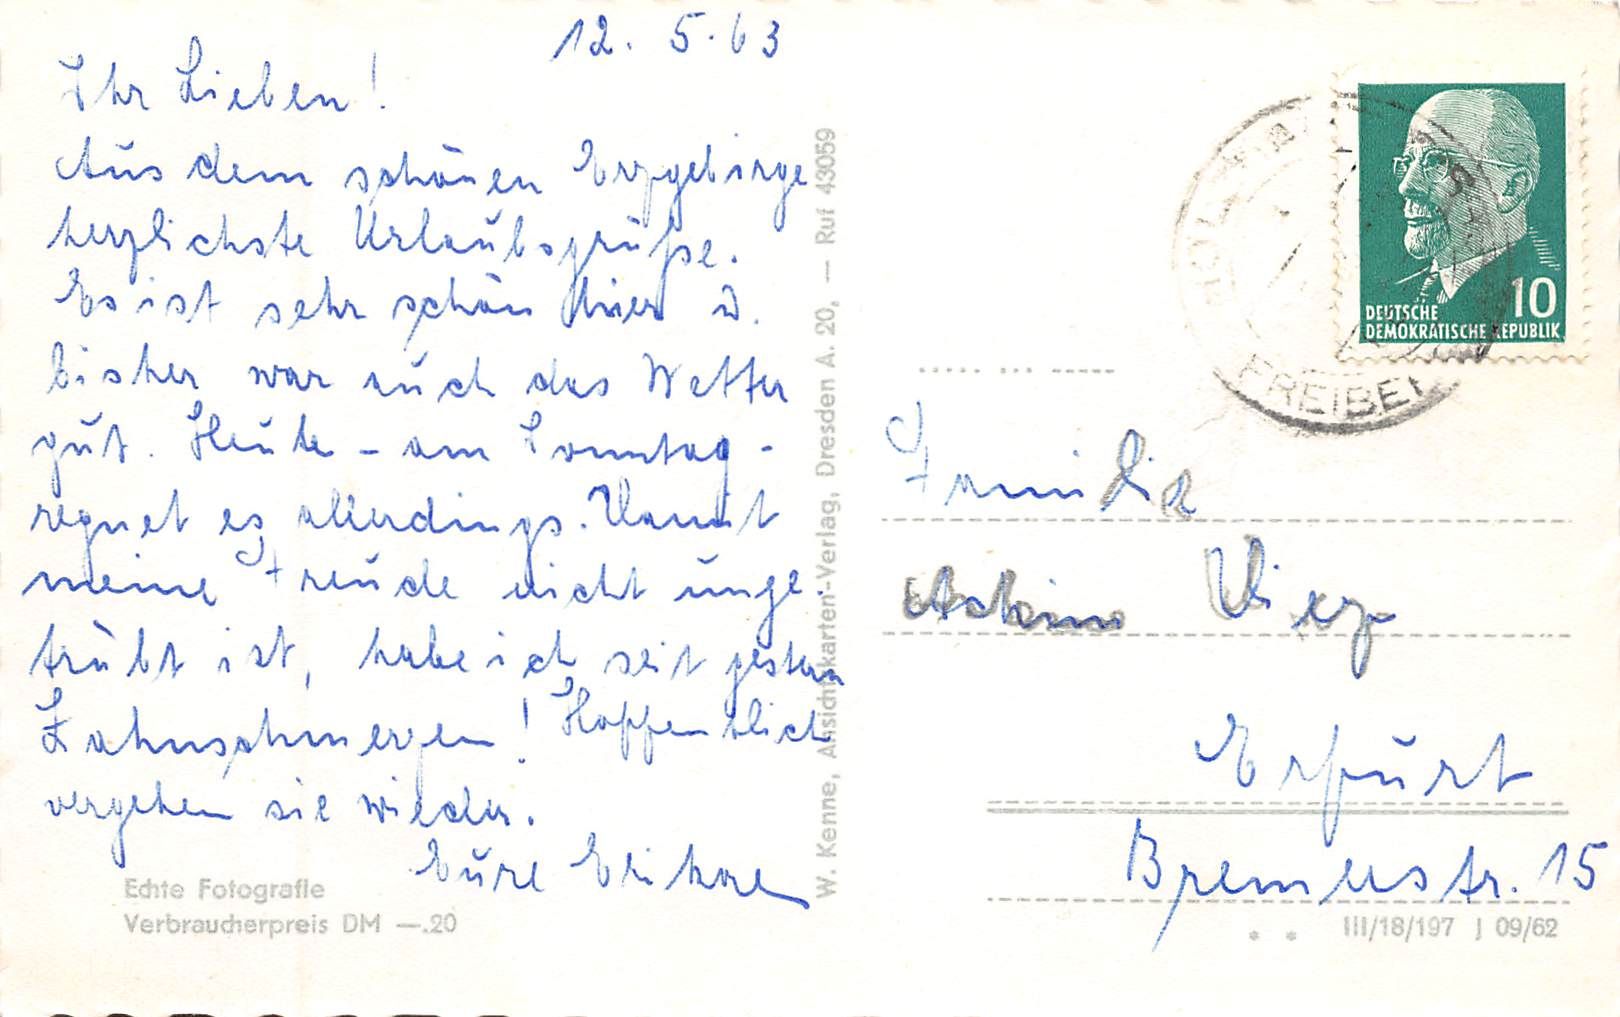 12. 5. 63
Ihr Lieben!
Aus dem schönen Erzgebirge
herzlichste Urlaubsgrüße.
Es ist sehr schön hier u.
bisher war auch das Wetter
gut. Heute – am Sonntag –
regnet es allerdings. Damit
meine Freude nicht unge-
trübt ist, habe ich seit gestern
Zahnschmerzen! Hoffentlich
vergehen sie wieder.
Eure
Echte Fotografie
Verbraucherpreis DM —.20
W. Kenne, Ansichtkarten-Verlag, Dresden A. 20, — Ruf 43059
DEUTSCHE
DEMOKRATISCHE REPUBLIK
10
FREIBE
Familie
Achim
Erfurt
Bremerstr. 15
III/18/197 J 09/62